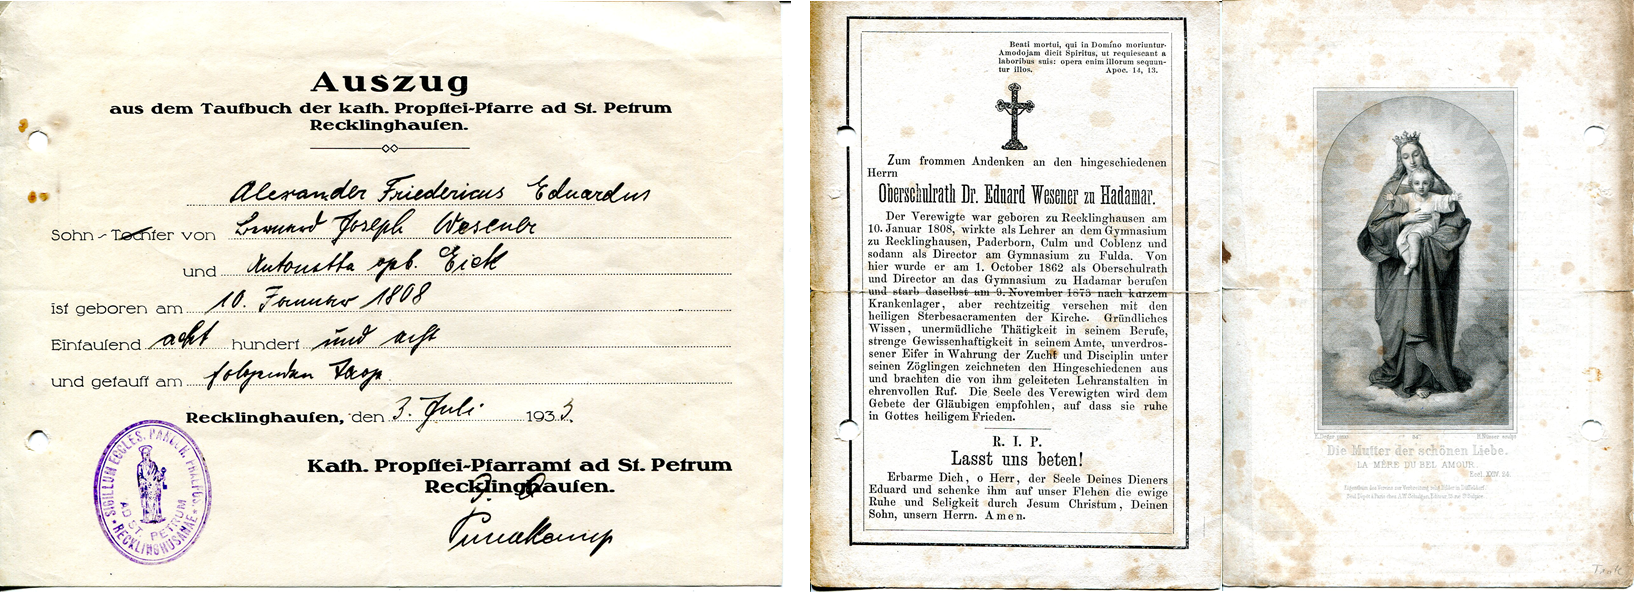 Auszug
aus dem Taufbuch der kath. Propstei-Pfarre ad St. Petrum
Recklinghausen.
Alexander Friedericus Eduardus
Sohn - Tochter von Bernard Joseph Wesener
und Antonetta geb. Eick
ist geboren am 10. Januar 1808
Eintausend acht hundert und acht
und getauft am folgenden Tage.
Recklinghausen, den 3. Juli 1933.
Kath. Propstei-Pfarramt ad St. Petrum
Recklinghausen.
SIGILLUM ECCLES. PAROCH. PRAEPOS.
AD ST. PETRUM
RECKLINGHUSANAE
Beati mortui, qui in Domino moriuntur.
Amodojam dicit Spiritus, ut requiescant a
laboribus suis: opera enim illorum sequun-
tur illos. Apoc. 14, 13.
Zum frommen Andenken an den hingeschiedenen
Herrn
Oberschulrath Dr. Eduard Wesener zu Hadamar.
Der Verewigte war geboren zu Recklinghausen am
10. Januar 1808, wirkte als Lehrer an dem Gymnasium
zu Recklinghausen, Paderborn, Culm und Coblenz und
sodann als Director am Gymnasium zu Fulda. Von
hier wurde er am 1. October 1862 als Oberschulrath
und Director an das Gymnasium zu Hadamar berufen
und starb daselbst am 9. November 1873 nach kurzem
Krankenlager, aber rechtzeitig versehen mit den
heiligen Sterbesacramenten der Kirche. Gründliches
Wissen, unermüdliche Thätigkeit in seinem Berufe,
strenge Gewissenhaftigkeit in seinem Amte, unverdros-
sener Eifer in Wahrung der Zucht und Disciplin unter
seinen Zöglingen zeichneten den Hingeschiedenen aus
und brachten die von ihm geleiteten Lehranstalten in
ehrenvollen Ruf. Die Seele des Verewigten wird dem
Gebete der Gläubigen empfohlen, auf dass sie ruhe
in Gottes heiligem Frieden.
R. I. P.
Lasst uns beten!
Erbarme Dich, o Herr, der Seele Deines Dieners
Eduard und schenke ihm auf unser Flehen die ewige
Ruhe und Seligkeit durch Jesum Christum, Deinen
Sohn, unsern Herrn. Amen.
Die Mutter der schönen Liebe.
LA MÈRE DU BEL AMOUR.
Eccl. XXIV. 24.